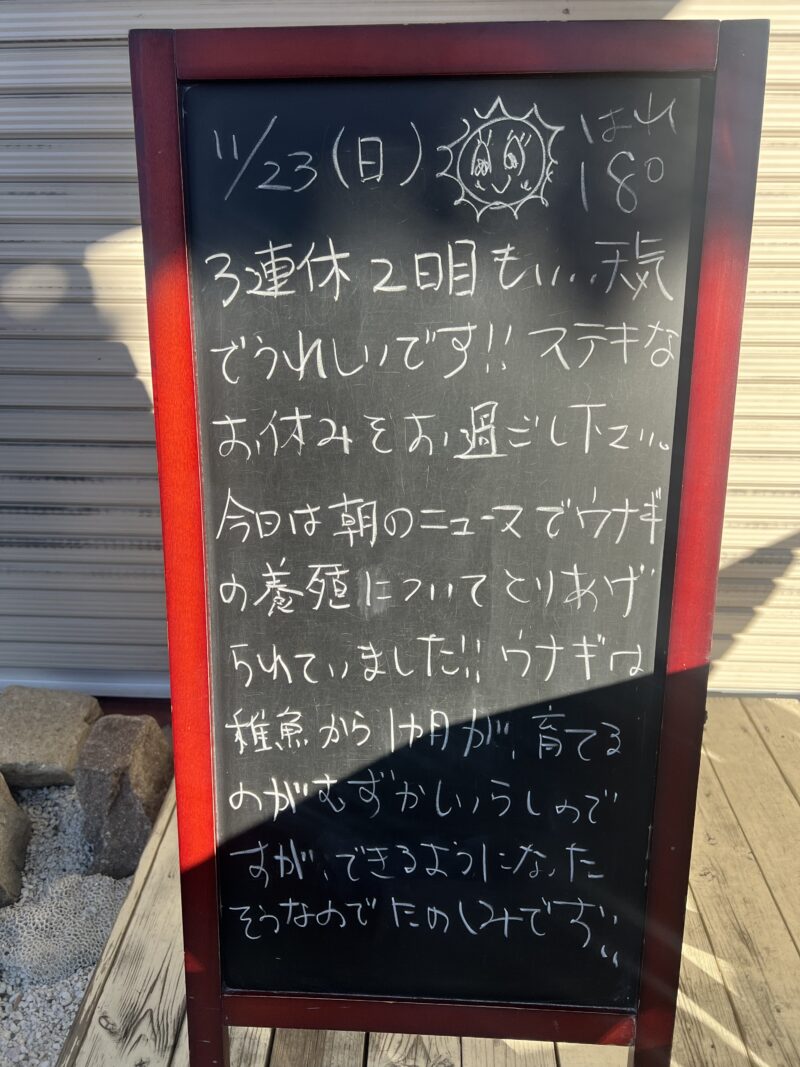 11/23(日) はれ
18°
3連休2日目もいい天気
でうれしいです!! ステキな
お休みをお過ごし下さい。
今日は朝のニュースでウナギ
の養殖についてとりあげ
られていました!! ウナギは
稚魚から1ヵ月が、育てる
のがむずかしいらしいので
すが、できるようになった
そうなのでたのしみです!!